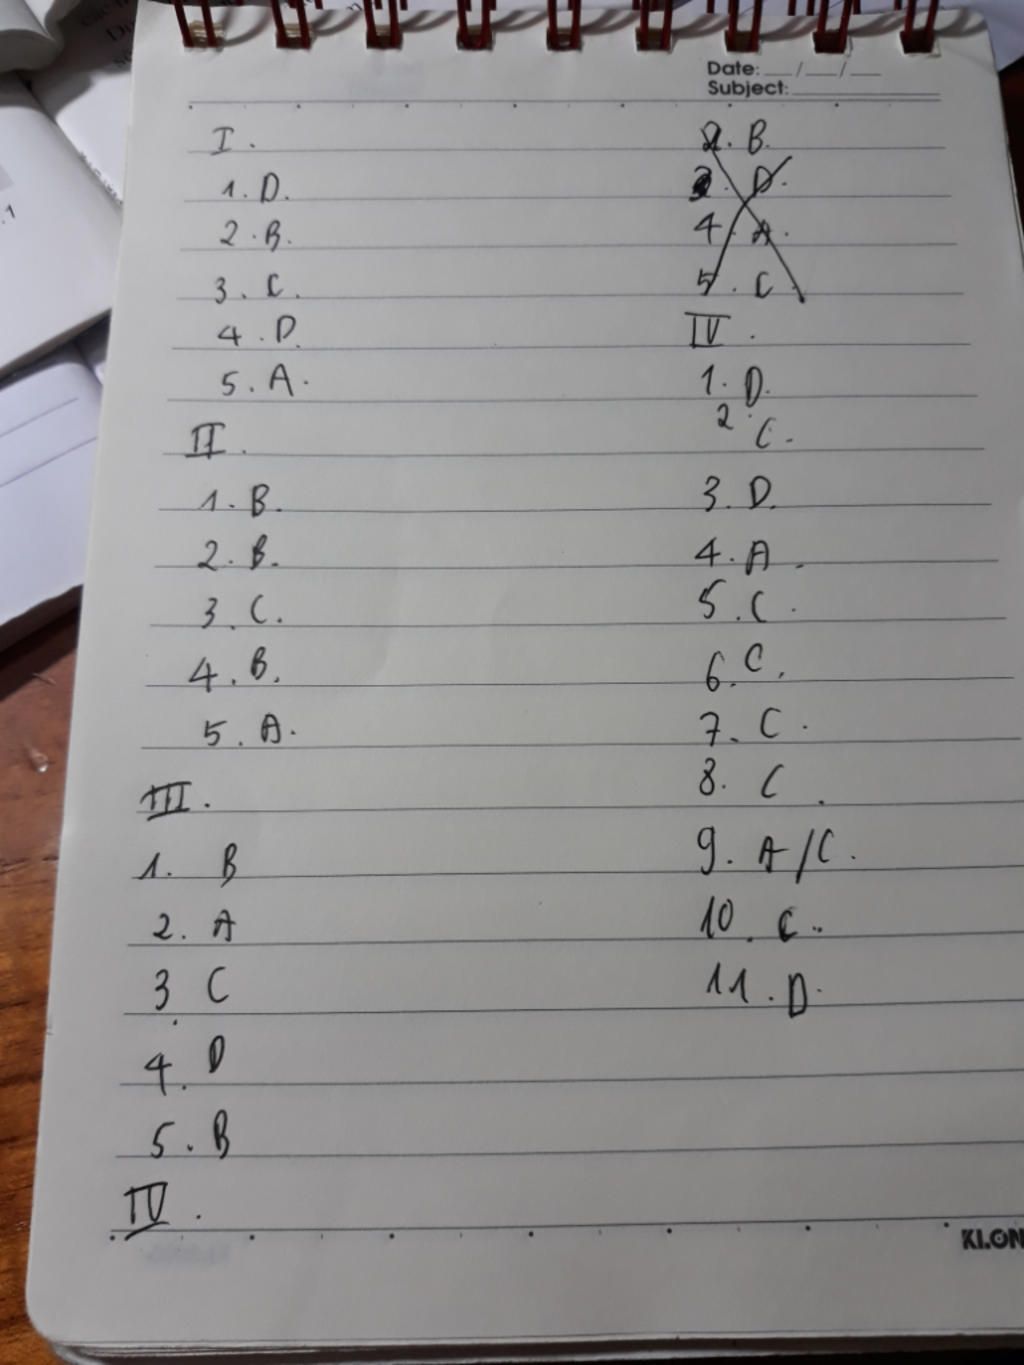 Date: __/__/__
Subject:
I.
1. D.
2. B.
3. C.
4. D.
5. A.
II.
1. B.
2. B.
3. C.
4. B.
5. A.
III.
1. B
2. A
3. C
4. D
5. B
IV.
2. B.
3. D.
4. A.
5. C
IV.
1. D.
2. C.
3. D.
4. A.
5. C.
6. C.
7. C.
8. C.
9. A/C.
10. C.
11. D.